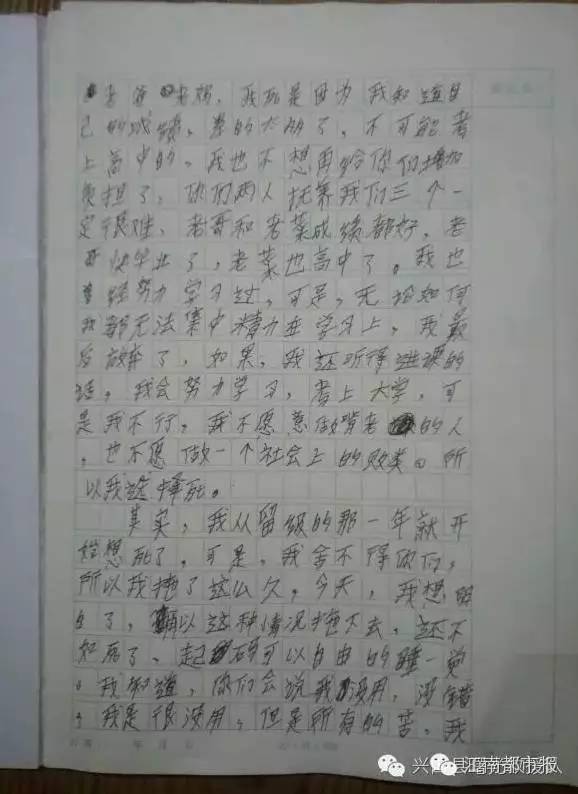 老爸老妈，我玩是因为我知道自
己的成绩，差的太多了，不可能考
上高中的，我也不想再给你们增加
负担了，你们两人抚养我们三个一
定很难，老哥和老菜成绩都好，老
哥快毕业了，老菜也高中了。我也
经努力学习过，可是，无论如何
我都无法集中精力在学习上，我最
后放弃了，如果，我还听得进课的
话，我会努力学习，考上大学，可
是我不行，我不愿意做啃老的人
，也不愿做一个社会上的败类。所
以我选择死。
其实，我从留级的那一年就开
始想死了，可是，我舍不得你们，
所以我拖了这么久，今天，我想明
白了，以这种情况拖下去，还不
如死了，起码可以自由的睡一觉
。我知道，你们会说我没用，没错
，我是很没用，但是所有的苦，我
年 月 日
江南都市报